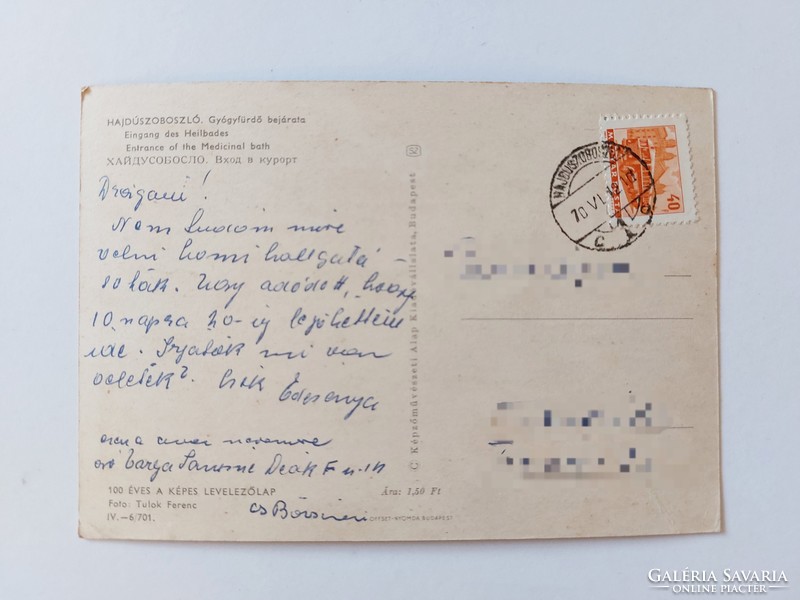 HAJDÚSZOBOSZLÓ. Gyógyfürdő bejárata
Eingang des Heilbades
Entrance of the Medicinal bath
ХАЙДУСОБОСЛО. Вход в курорт
Drágáim!
Nem tudom mire
vélni hallgatá-
sotok. Úgy adódott, hogy
10 napra 20-ig lejöhettem
ide. Irjatok mi van
veletek? Csók Édesanya
Varga Deák F u.
100 ÉVES A KÉPES LEVELEZŐLAP
Ára: 1,50 Ft
Foto: Tulok Ferenc
IV.—6/701.
OFFSET-NYOMDA BUDAPEST
C Képzőművészeti Alap Kiadóvállalata, Budapest
HAJDÚSZOBOSZLÓ
70 VI
40
GALÉRIA SAVARIA
ONLINE PIACTÉR
www.galeriasavaria.hu